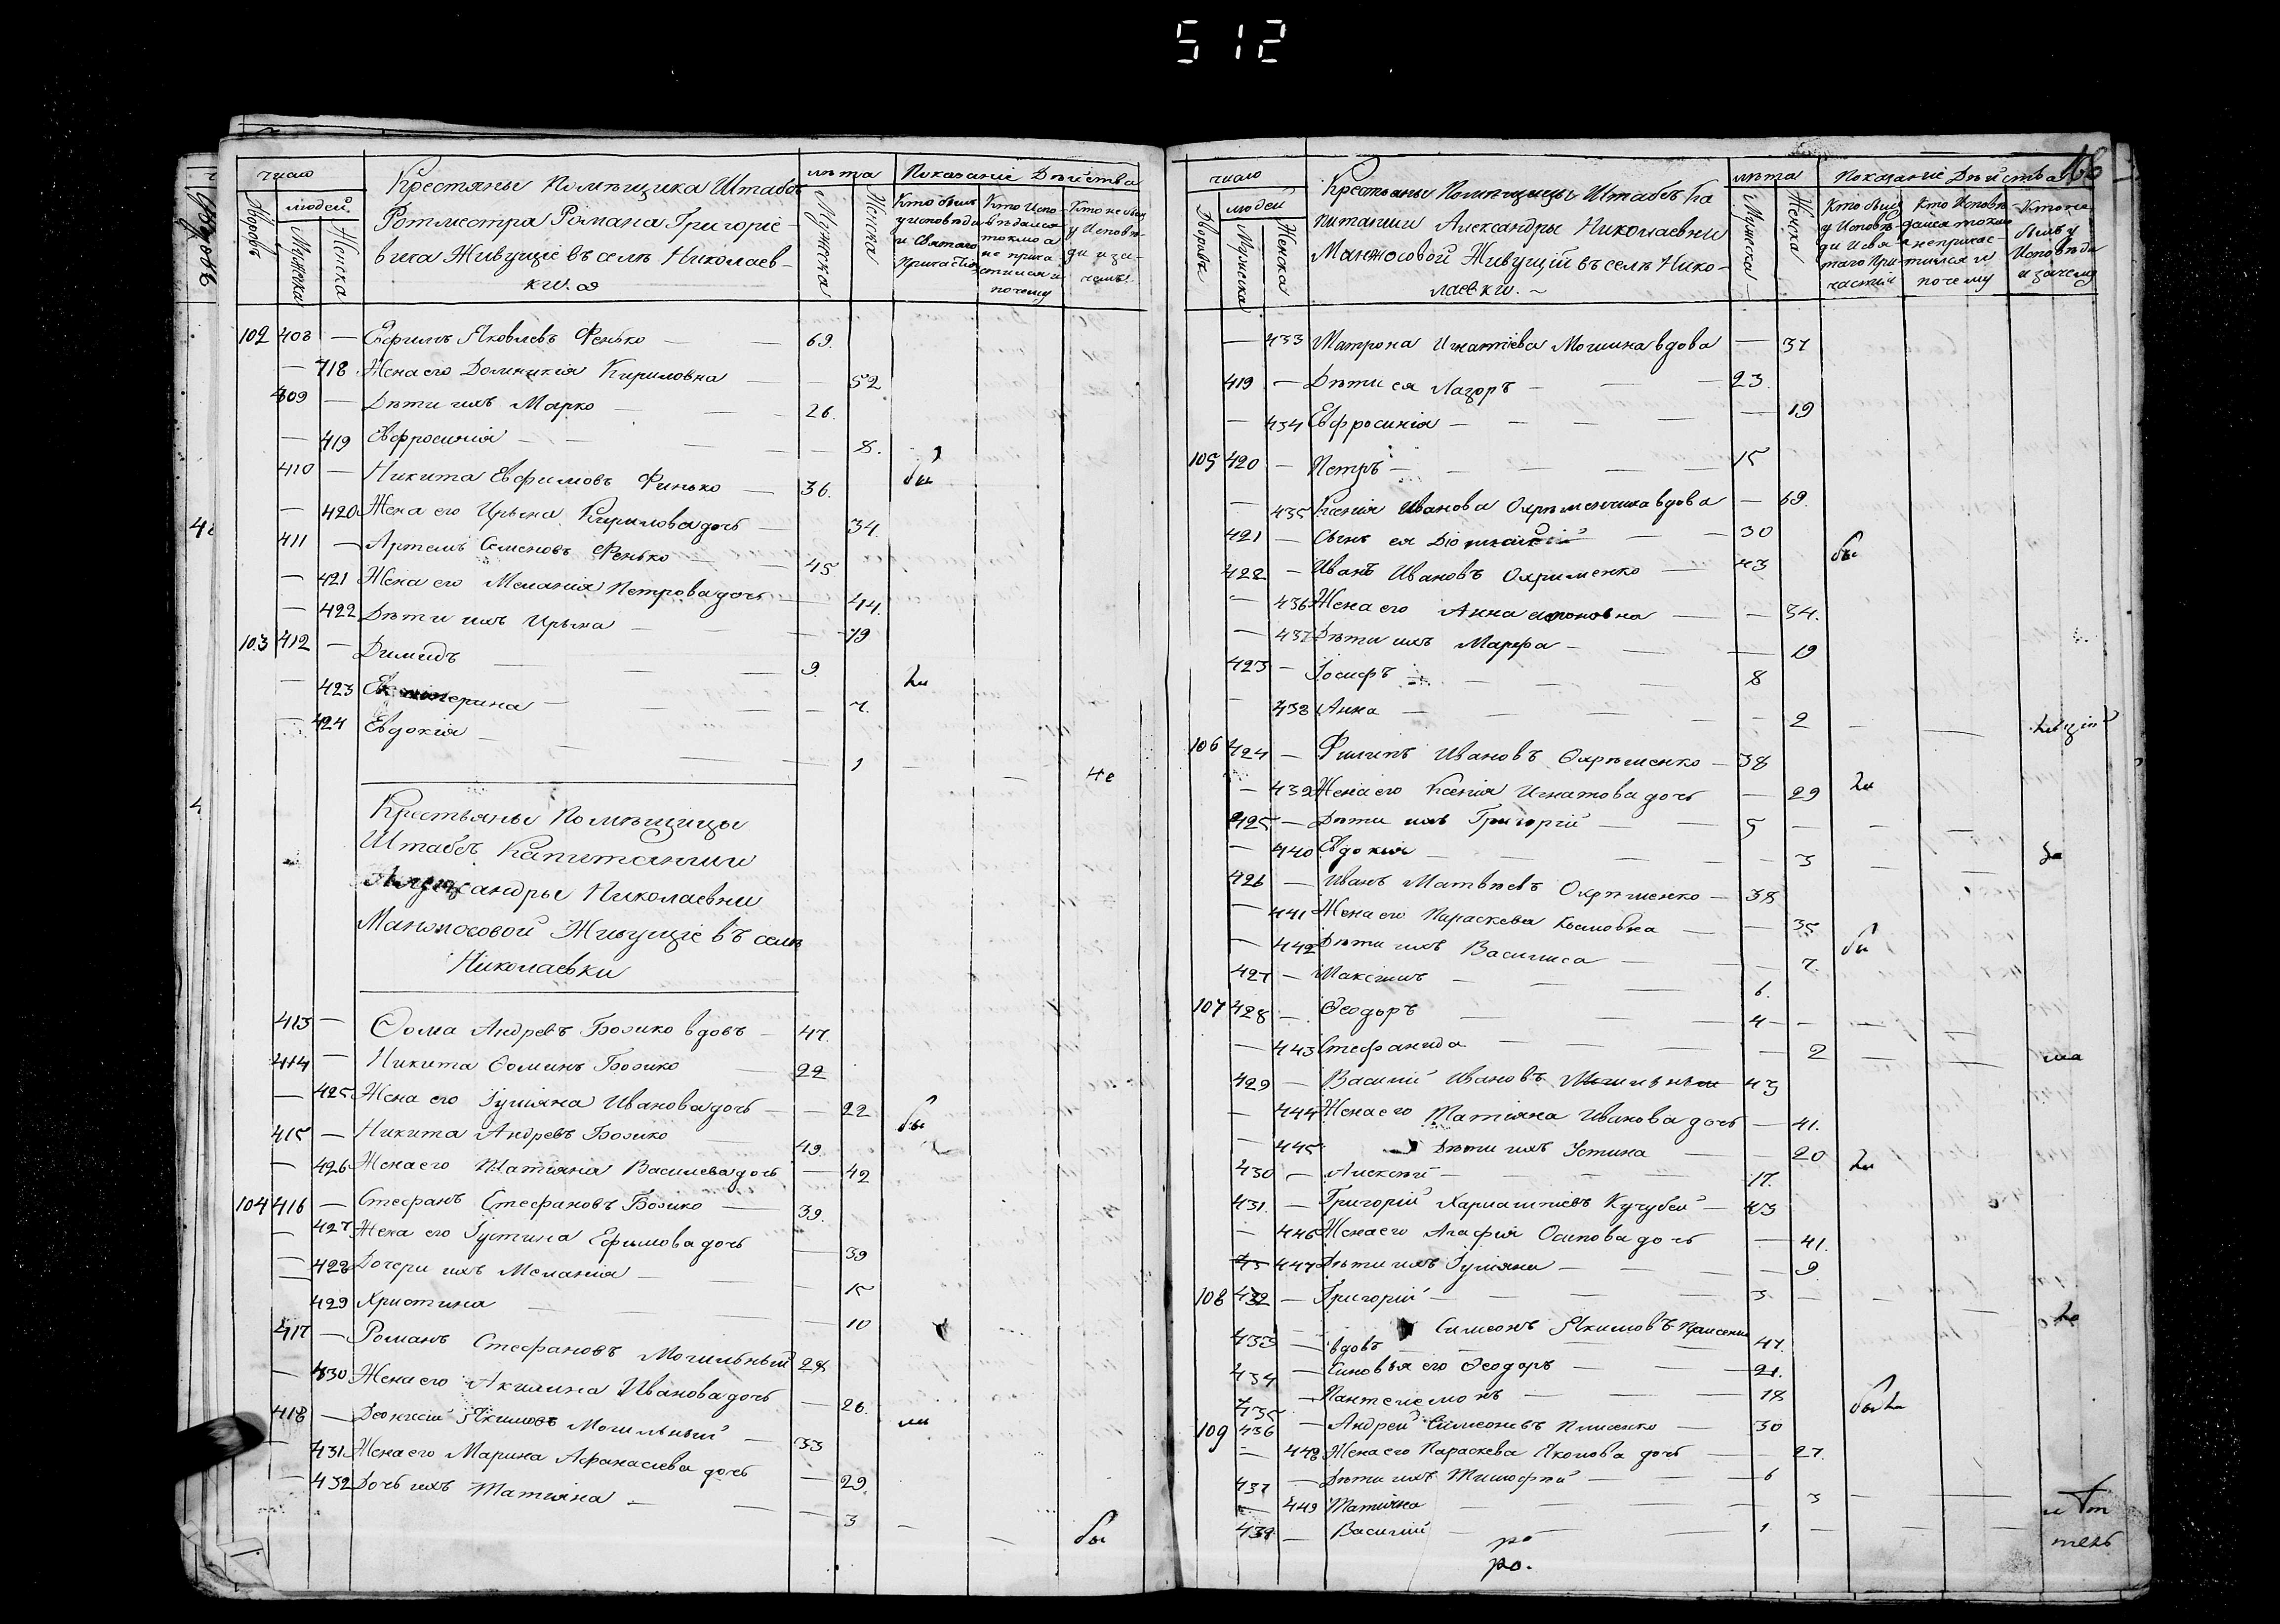 512
число
людей
Дворовъ
Мужеска
Женска
Крестяны Помѣщика Штабсъ
Ротмистра Романа Григоріе-
вича Живущіе въ селѣ Николаев-
ки.
лѣта
Мужска
Женска
Показаніе Дѣйства
Кто былъ
у исповѣди
и Святаго
Причастія
Кто Испо-
вѣдался
токмо а
не прича
стился и
почему
Кто не былъ
у Исповѣ-
ди и за-
чемъ
102 408 — Ефимъ Яковлевъ Фенько — 69.
— 718 Жена его Домникія Кириловна — 52
409 — Дѣти ихъ Марко — 26.
— 419 Евфросинія — 8.
410 — Никита Евфимовъ Финько — 36. бы
— 420 Жена его Ирына Кирилова дочь — 34.
411 — Артемъ Семеновъ Фенько — 45
— 421 Жена его Меланія Петрова дочь — 44.
— 422 Дѣти ихъ Ирына — 19
103 412 — Димидъ — 9. ли
— 423 Екатерина — 7.
— 424 Евдокія — 1 — — не
Крестьяны Помѣщицы
Штабсъ Капитанши
Александры Николаевни
Манжосовой Живущіе въ селѣ
Николаевки
413 — Ѳома Андреевъ Божко вдовъ — 47.
414 — Никита Ѳоминъ Божко — 22
— 425 Жена его Іуліяна Иванова дочь — 22 бы
415 — Никита Андревъ Божко 49.
— 426 Жена его Татіяна Василева дочь — 42
104 416 — Стефанъ Стефановъ Божко — 39.
— 427 Жена его Іустина Ефимова дочь 39
— 428 Дочери ихъ Меланія — 15
429 Христина — 10
417 — Романъ Стефановъ Могильный 28
— 430 Жена его Акилина Иванова дочь — 26.
418 — Деонисій Якимовъ Могильный — 33 ли
431 Жена его Марина Афанасиева дочь — 29.
— 432 Дочь ихъ Татіяна — 3 — — бы
число
людей
Дворовъ
Мужска
Женска
Крестьяны Помѣщицы Штабсъ Ка
питанши Александры Николаевни
Манжосовой Живущій въ селѣ Нико-
лаевки. ~
лѣта
Мужеска
Женска
Показаніе Дѣйства
Кто былъ
у Исповѣ-
ди и Свя-
таго При-
частія
Кто Исповѣ-
дался токмо
а непричас-
тился и
почему
Кто не
былъ у
Исповѣди
и зачемъ
— 433 Матрона Игнатіева Мошина вдова — 37
419 — Дѣти ея Лазоръ — 23.
— 434 Евфросинія — 19
105 420 — Петръ — 15
— 435 Ксенія Иванова Охрѣменчика вдова — 69.
421 — Сынъ ея — 30 бы
422 — Иванъ Ивановъ Охрименко — 43
— 436 Жена его Анна — 34.
— 437 Дѣти ихъ Марфа — 19
423 — Іосифъ — 8
— 438 Анна — 2 — —
106 424 — Филипъ Ивановъ Охрѣменко — 38
— 439 Жена его Ксенія Игнатова дочь — 29 ли
425 — Дѣти ихъ Григорій — 5 — — —
— 440 Евдокія — 3 — — за
426 — Иванъ Матвѣевъ Охрѣменко — 38
— 441 Жена его Параскева — 35
— 442 Дѣти ихъ Василиса — 7. бы
427 — Максимъ — 6.
107 428 — Ѳеодоръ — 4 — — —
— 443 Стефанида — 2 — — ма
429 — Василій Ивановъ 43
— 444 Жена его Татіяна Иванова дочь — 41.
— 445 Дѣти ихъ Устина — 20 ли
430 — Алексѣй — 17.
431. — Григорій Харлампіевъ Кучубей — 43
— 446 Жена его Агафія Осипова дочь — 41.
447 Дѣти ихъ Іуліяна — 9
108 432 — Григорій — 3 — — —
433 — Симеонъ Якимовъ
вдовъ — 47.
434 — Синовья его Ѳеодоръ — 21.
435 — Пантелемонъ — 18 были
109 436 — Андрей Симеоновъ Плисенко — 30
— 448 Жена его Параскева Якимова дочь — 27.
437 — Дѣти ихъ Тимофѣй — 6
— 449 Татіяна — 3 — —
438 — Василій — 1 — — —
ро
ро.